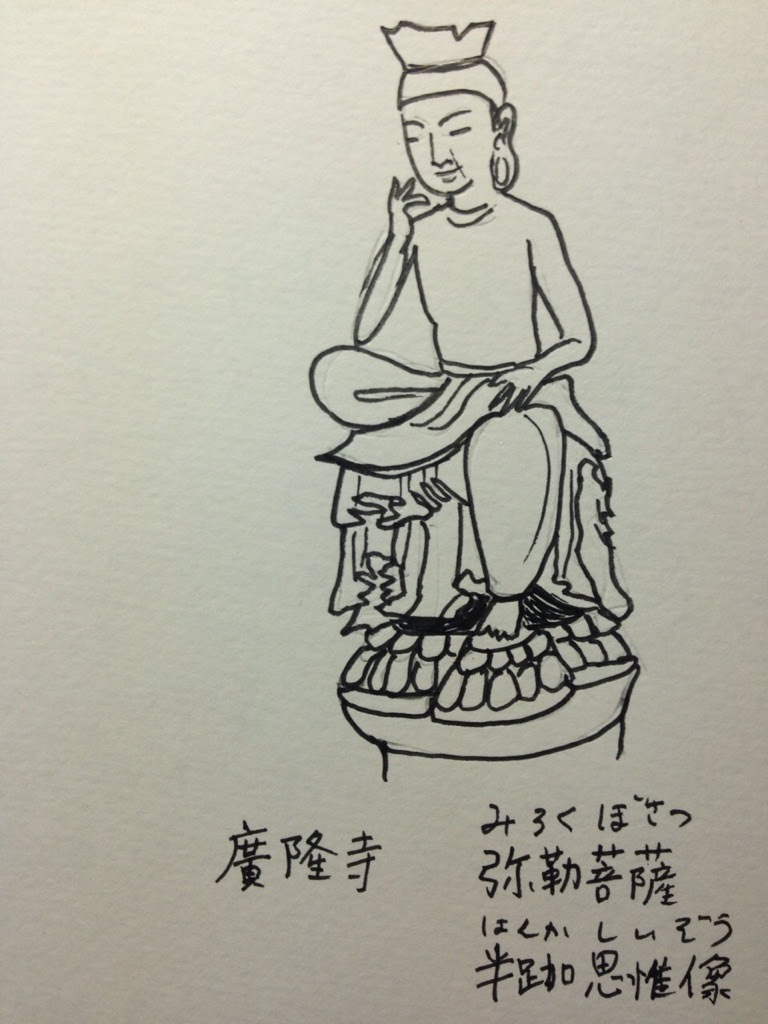 廣隆寺
みろくぼさつ
弥勒菩薩
はんか しいぞう
半跏思惟像